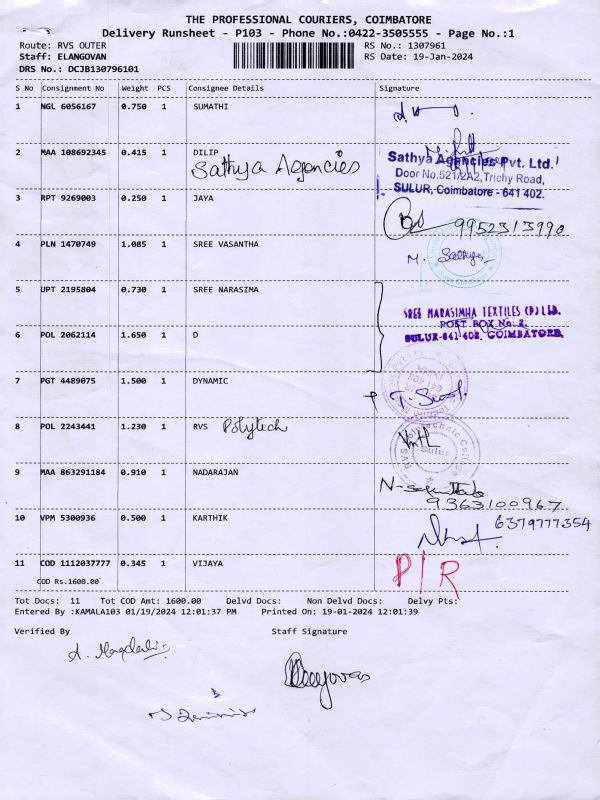 THE PROFESSIONAL COURIERS, COIMBATORE
Delivery Runsheet - P103 - Phone No.:0422-3505555 - Page No.:1
Route: RVS OUTER RS No.: 1307961
Staff: ELANGOVAN RS Date: 19-Jan-2024
DRS No.: DCJB130796101
S No Consignment No Weight PCS Consignee Details Signature
1 NGL 6056167 0.750 1 SUMATHI
2 MAA 108692345 0.415 1 DILIP
Sathya Agencies
Sathya Agencies Pvt. Ltd.
Door No.521/2A2, Trichy Road,
SULUR, Coimbatore - 641 402.
3 RPT 9269003 0.250 1 JAYA
9952313990
4 PLN 1470749 1.085 1 SREE VASANTHA
M. Sathya
5 UPT 2195804 0.730 1 SREE NARASIMA
SREE NARASIMHA TEXTILES (P) LTD.
POST BOX No: 2,
SULUR-641 402, COIMBATORE.
6 POL 2062114 1.650 1 D
7 PGT 4489075 1.500 1 DYNAMIC
8 POL 2243441 1.230 1 RVS Polytech
Sulur
9 MAA 863291184 0.910 1 NADARAJAN
9363100967
10 VPM 5300936 0.500 1 KARTHIK
6379777354
11 COD 1112037777 0.345 1 VIJAYA P/R
COD Rs.1600.00
Tot Docs: 11 Tot COD Amt: 1600.00 Delvd Docs: Non Delvd Docs: Delvy Pts:
Entered By :KAMALA103 01/19/2024 12:01:37 PM Printed On: 19-01-2024 12:01:39
Verified By Staff Signature